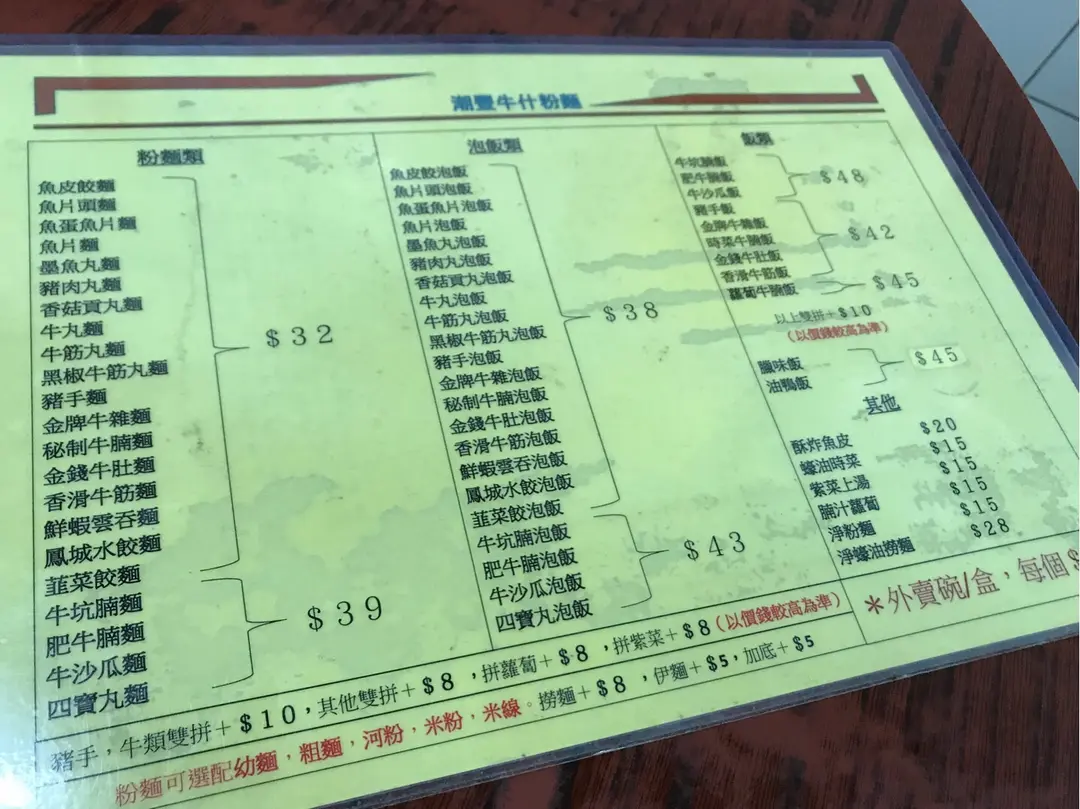 潮豐牛什粉麵
粉麵類
魚皮餃麵
魚片頭麵
魚蛋魚片麵
魚片麵
墨魚丸麵
豬肉丸麵
香菇貢丸麵
牛丸麵
牛筋丸麵
黑椒牛筋丸麵
豬手麵
金牌牛雜麵
秘制牛腩麵
金錢牛肚麵
香滑牛筋麵
鮮蝦雲吞麵
鳳城水餃麵
$32
韮菜餃麵
牛坑腩麵
肥牛腩麵
牛沙瓜麵
四寶丸麵
$39
泡飯類
魚皮餃泡飯
魚片頭泡飯
魚蛋魚片泡飯
魚片泡飯
墨魚丸泡飯
豬肉丸泡飯
香菇貢丸泡飯
牛丸泡飯
牛筋丸泡飯
黑椒牛筋丸泡飯
豬手泡飯
金牌牛雜泡飯
秘制牛腩泡飯
金錢牛肚泡飯
香滑牛筋泡飯
鮮蝦雲吞泡飯
鳳城水餃泡飯
$38
韮菜餃泡飯
牛坑腩泡飯
肥牛腩泡飯
牛沙瓜泡飯
四寶丸泡飯
$43
飯類
牛坑腩飯
肥牛腩飯
牛沙瓜飯
$48
豬手飯
金牌牛雜飯
時菜牛腩飯
金錢牛肚飯
香滑牛筋飯
$42
蘿蔔牛腩飯
$45
以上雙拼+$10
(以價錢較高為準)
臘味飯
油鴨飯
$45
其他
酥炸魚皮 $20
蠔油時菜 $15
紫菜上湯 $15
腩汁蘿蔔 $15
淨粉麵 $15
淨蠔油撈麵 $28
*外賣碗/盒，每個$
豬手，牛類雙拼+$10，其他雙拼+$8，拼蘿蔔+$8，拼紫菜+$8(以價錢較高為準)
粉麵可選配幼麵，粗麵，河粉，米粉，米線。撈麵+$8，伊麵+$5，加底+$5